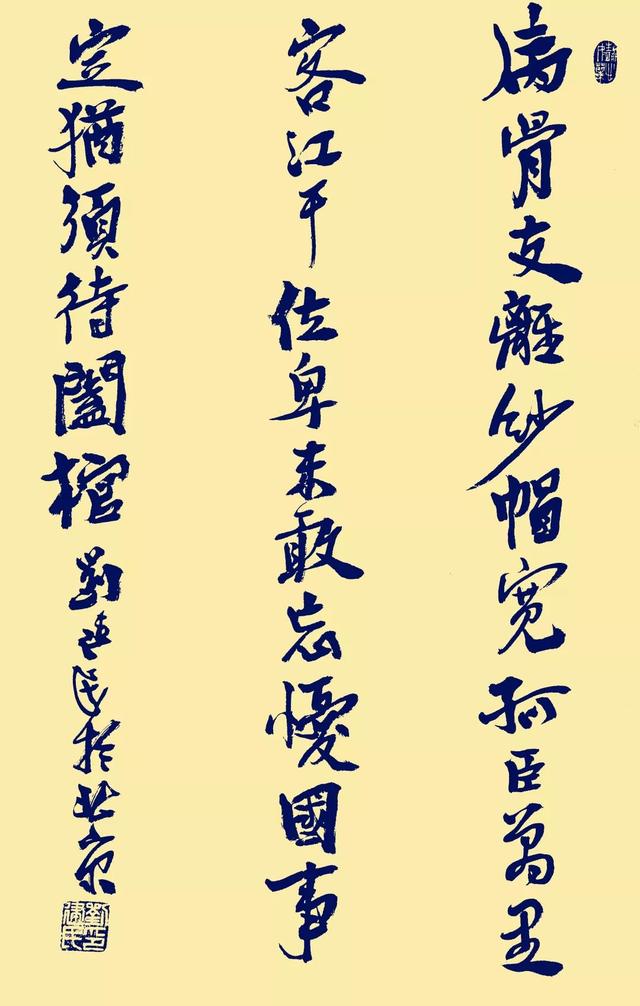 病骨支離紗帽寬孤臣萬里
客江干位卑未敢忘懮國事
定猶須待闔棺劉建民於北京
劉印建民